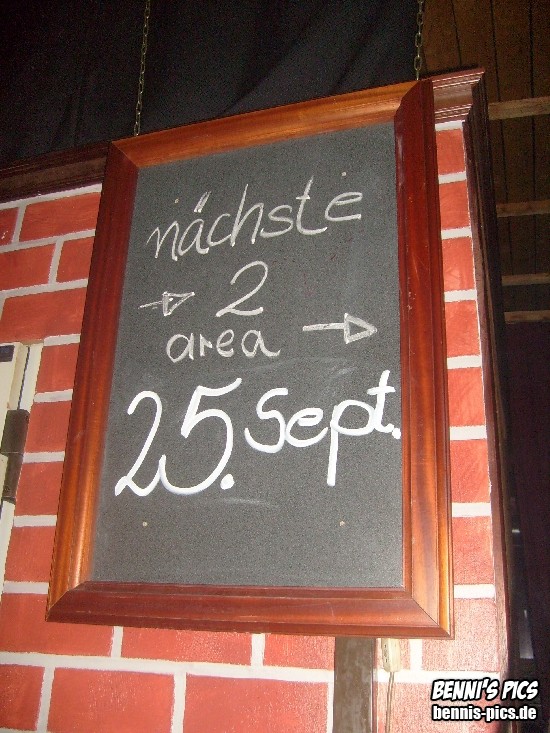 nächste
→ 2
area →
25. Sept.
BENNI'S PICS
bennis-pics.de